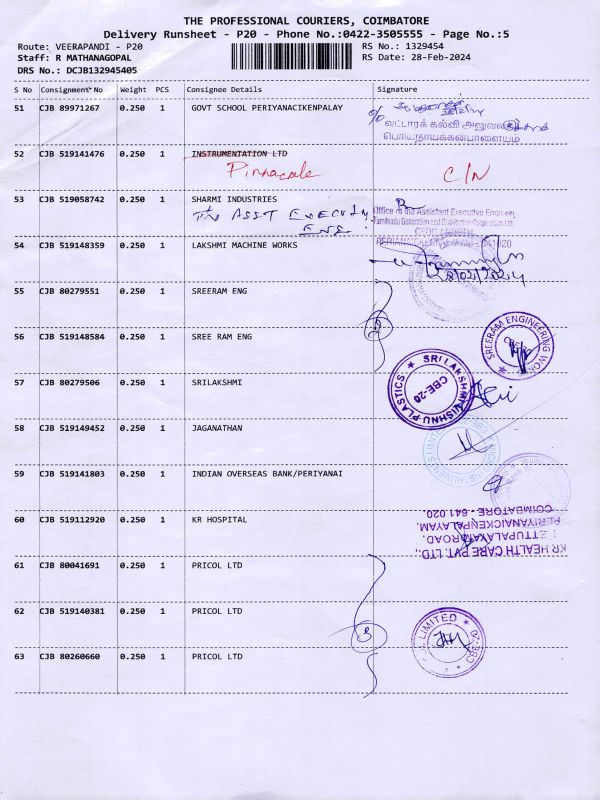 THE PROFESSIONAL COURIERS, COIMBATORE
Delivery Runsheet - P20 - Phone No.:0422-3505555 - Page No.:5
Route: VEERAPANDI - P20 RS No.: 1329454
Staff: R MATHANAGOPAL RS Date: 28-Feb-2024
DRS No.: DCJB132945405
S No Consignment No Weight PCS Consignee Details Signature
51 CJB 89971267 0.250 1 GOVT SCHOOL PERIYANACIKENPALAY
வட்டாரக் கல்வி
பெரியநாயக்கன்பாளையம்
52 CJB 519141476 0.250 1 INSTRUMENTATION LTD
Pinnacale C/N
53 CJB 519058742 0.250 1 SHARMI INDUSTRIES
The ASST
ENG. Office of the Assistant Executive Engineer
54 CJB 519148359 0.250 1 LAKSHMI MACHINE WORKS
28/02/2024
55 CJB 80279551 0.250 1 SREERAM ENG
56 CJB 519148584 0.250 1 SREE RAM ENG
SREERAM ENGINEERING
57 CJB 80279506 0.250 1 SRILAKSHMI
SRI LAKSHMI VISHNU PLASTICS CBE-20
58 CJB 519149452 0.250 1 JAGANATHAN
59 CJB 519141803 0.250 1 INDIAN OVERSEAS BANK/PERIYANAI
60 CJB 519112920 0.250 1 KR HOSPITAL
KR HEALTH CARE PVT. LTD.,
METTUPALAYAM ROAD,
PERIYANAICKENPALAYAM,
COIMBATORE - 641 020.
61 CJB 80041691 0.250 1 PRICOL LTD
62 CJB 519140381 0.250 1 PRICOL LTD
3 LIMITED
63 CJB 80260660 0.250 1 PRICOL LTD